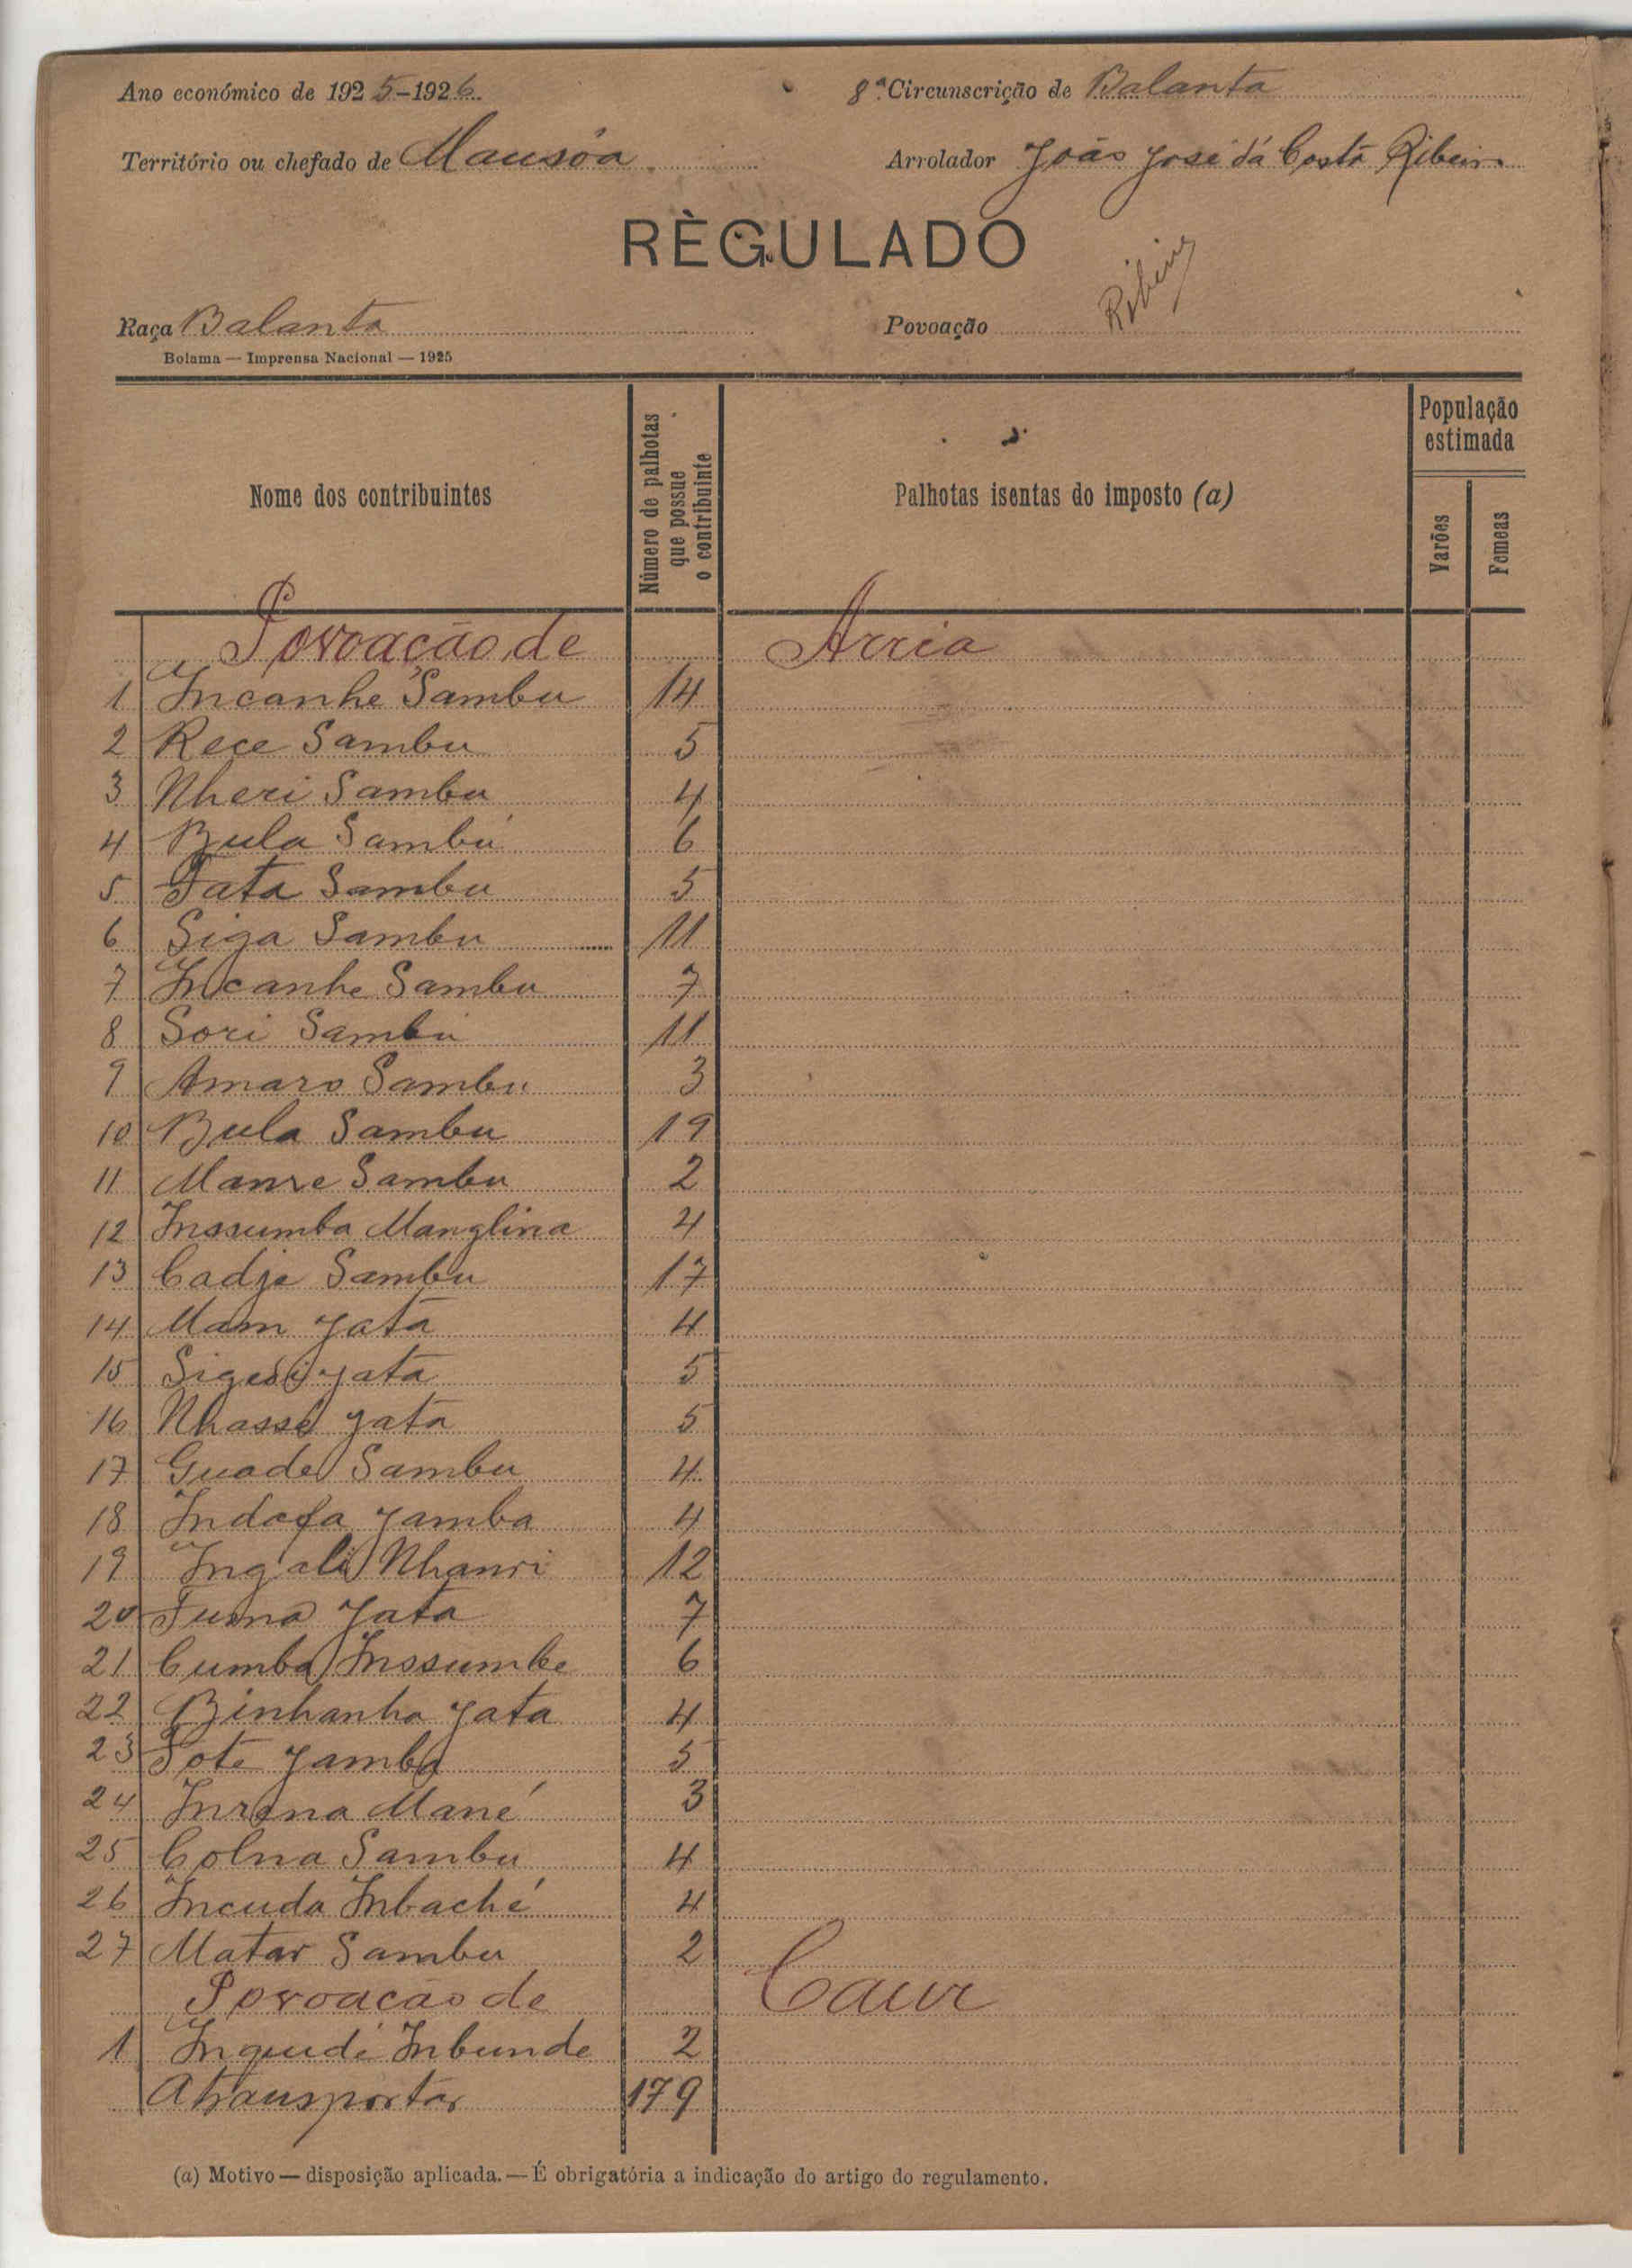 Ano económico de 1925-1926
8ª Circunscrição de Balanta
Território ou chefado de Mansôa
Arrolador João José da Costa Ribeiro
RÈGULADO
Ribeiro
Raça Balanta
Povoação
Bolama — Imprensa Nacional — 1925
Nome dos contribuintes
Número de palhotas que possue o contribuinte
Palhotas isentas do imposto (a)
População estimada
Varões
Femeas
Povoação de Arria
1 Incanhe Sambu 14
2 Rece Sambu 5
3 Nheri Sambu 4
4 Bula Sambu 6
5 Tata Sambu 5
6 Siga Sambu 11
7 Incanhe Sambu 7
8 Sori Sambu 11
9 Amaro Sambu 3
10 Bula Sambu 19
11 Manre Sambu 2
12 Inssumba Manglina 4
13 Cadje Sambu 17
14 Mam Yata 4
15 Yata 5
16 Nhassé Yata 5
17 Guade Sambu 4
18 Indafa Yamba 4
19 Ingali Nhanri 12
20 Yata 7
21 Cumba Inssumbe 6
22 Binhanha Yata 4
23 Yamba 5
24 Mané 3
25 Colna Sambu 4
26 Incuda Inbaché 4
27 Matar Sambu 2
Povoação de Caur
1 Inquidé Inbunde 2
A transportar 179
(a) Motivo — disposição aplicada. — É obrigatória a indicação do artigo do regulamento.